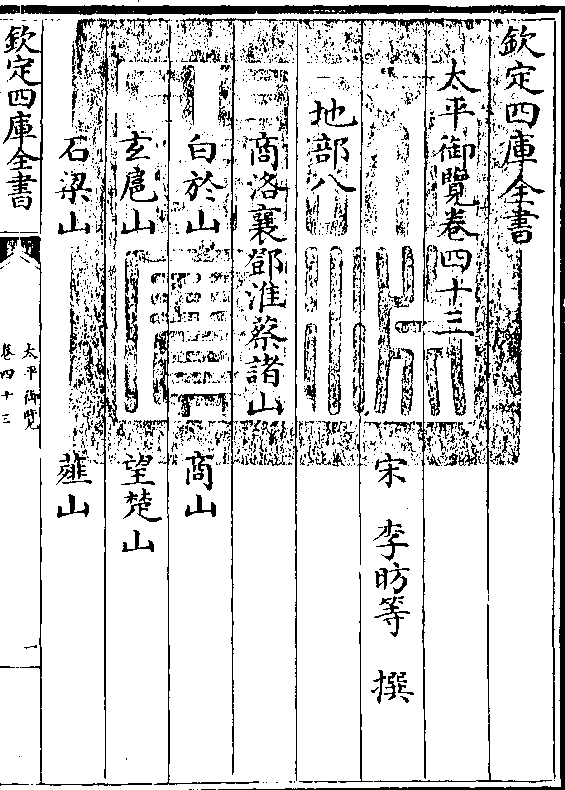 欽定四庫全書
太平御覽卷四十三
宋 李昉等 撰
地部八
商洛襄鄧淮蔡諸山
白於山 商山
玄扈山 望楚山
石梁山 薤山
欽定四庫全書
太平御覽
卷四十三
一